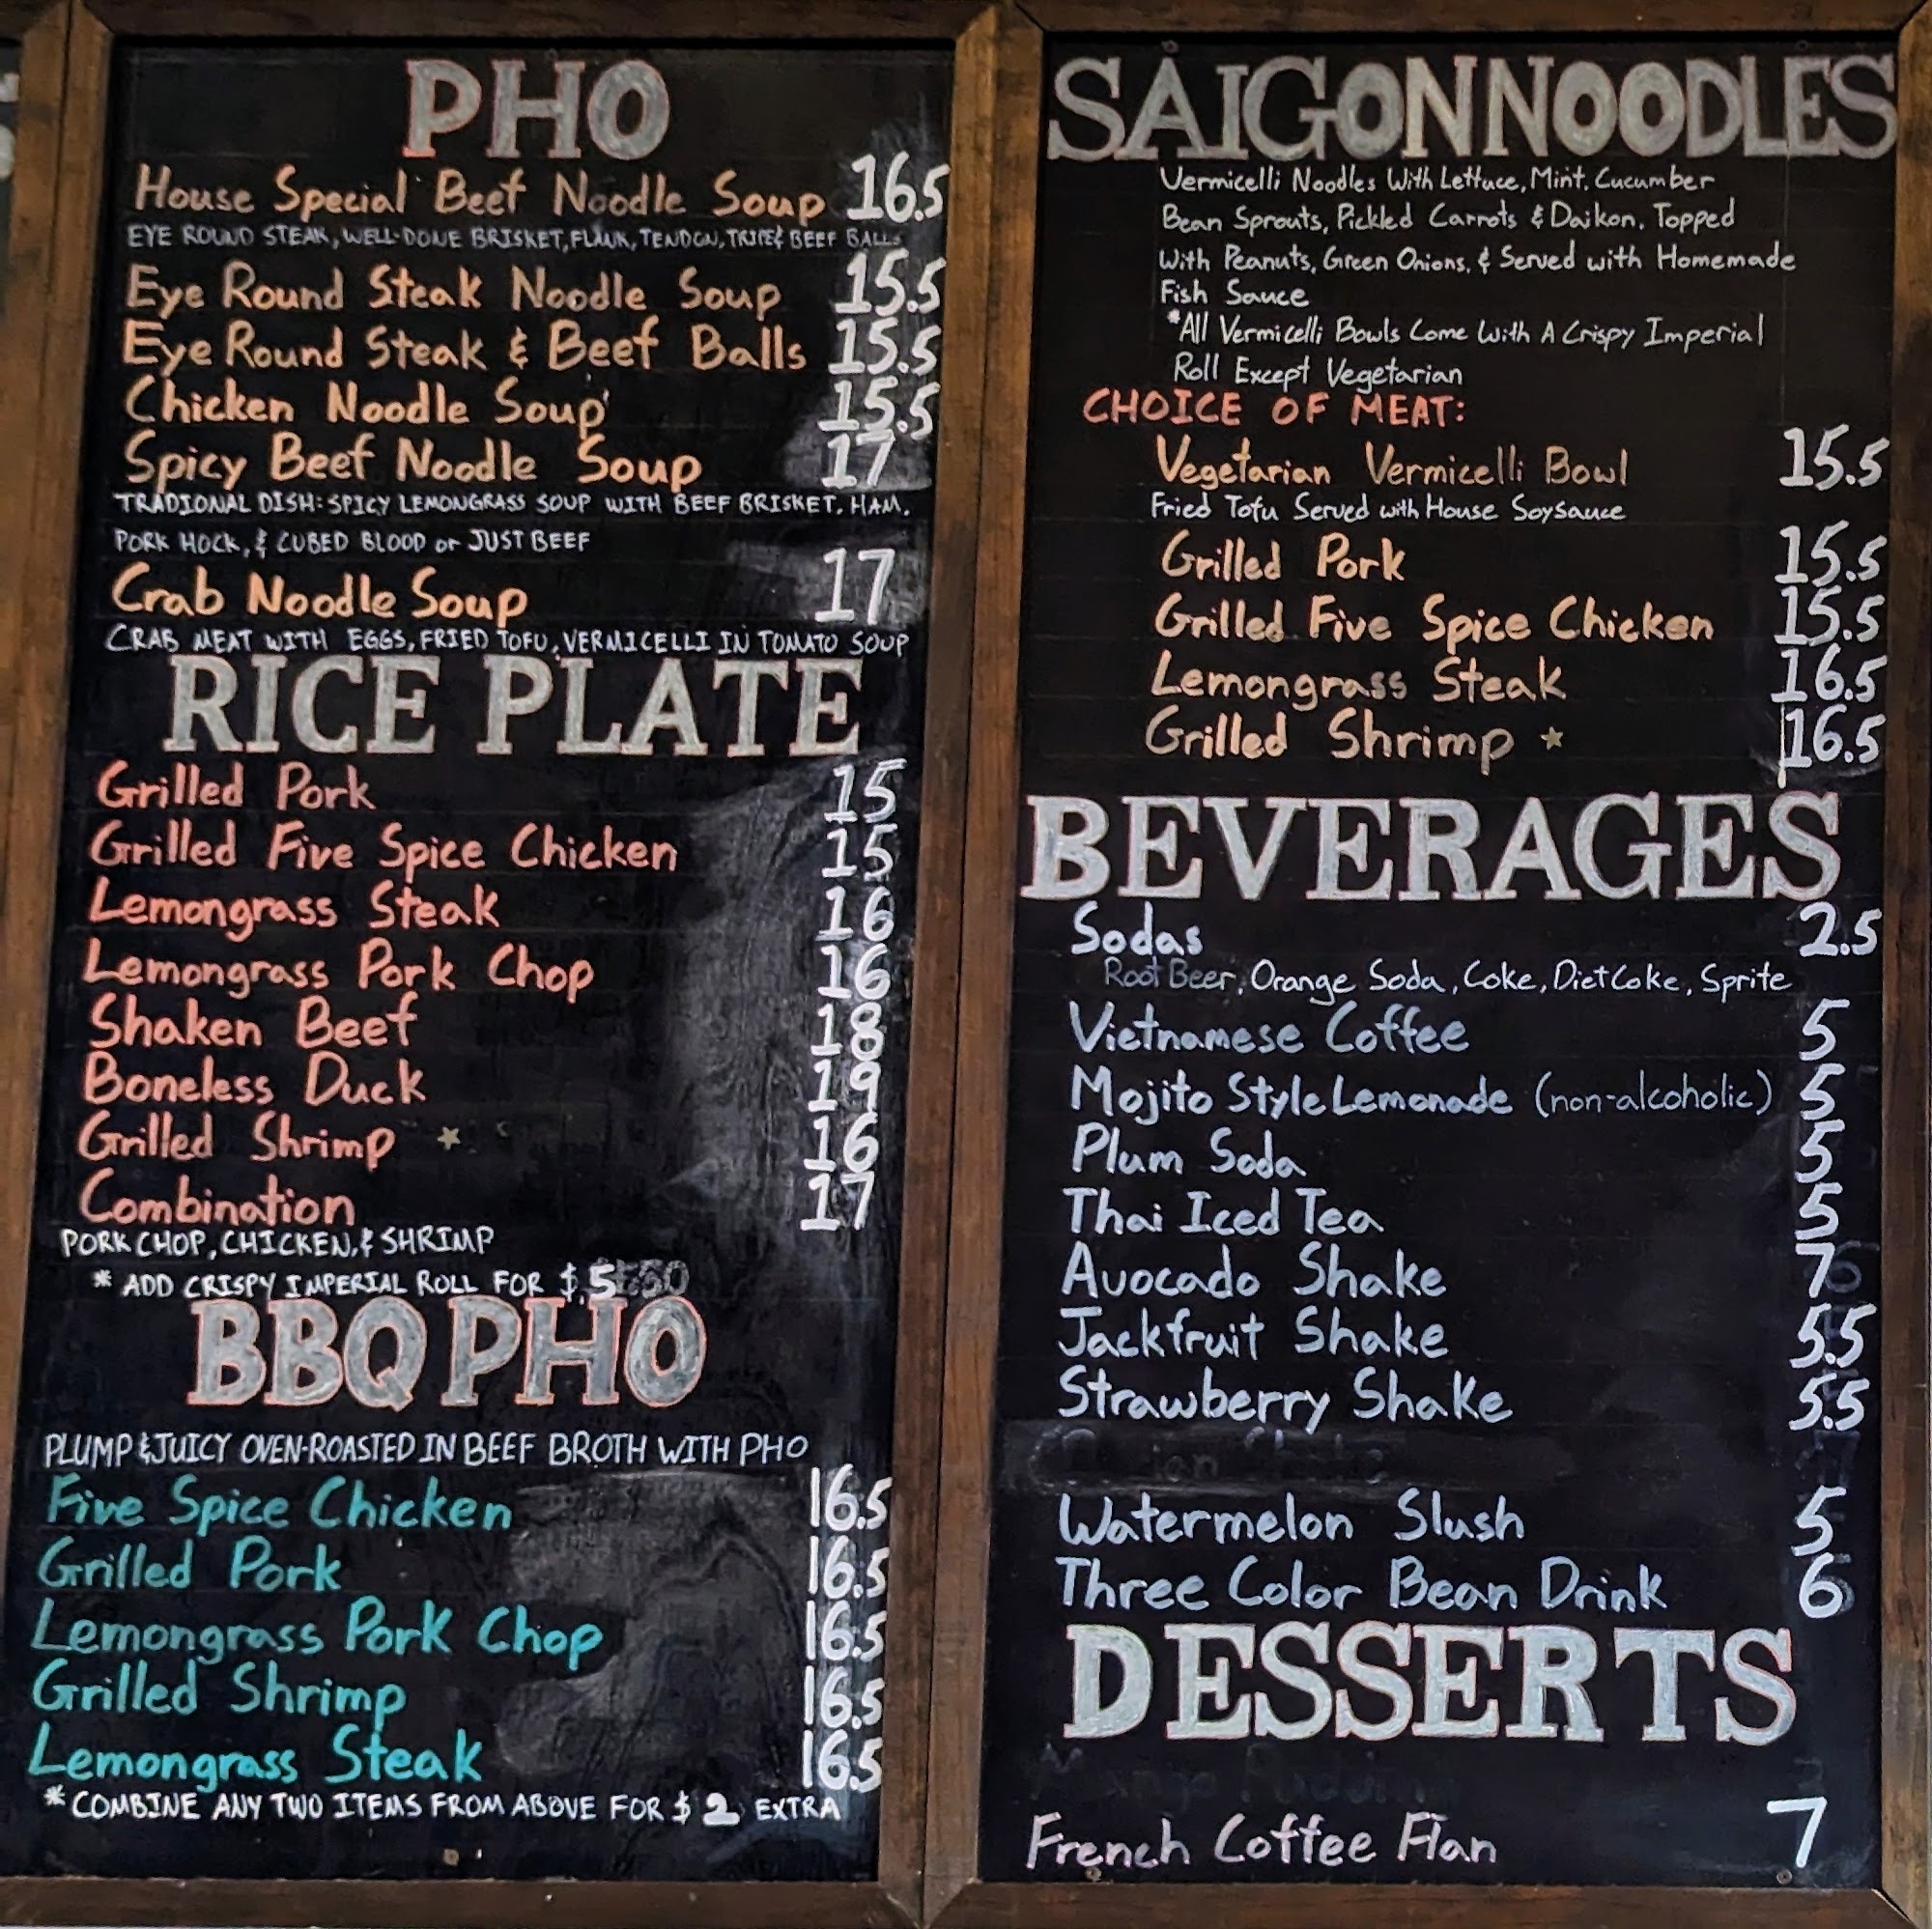 PHO
House Special Beef Noodle Soup 16.5
EYE ROUND STEAK, WELL-DONE BRISKET, FLANK, TENDON, TRIPE & BEEF BALLS
Eye Round Steak Noodle Soup 15.5
Eye Round Steak & Beef Balls 15.5
Chicken Noodle Soup 15.5
Spicy Beef Noodle Soup 17
TRADIONAL DISH: SPICY LEMONGRASS SOUP WITH BEEF BRISKET, HAM,
PORK HOCK, & CUBED BLOOD or JUST BEEF
Crab Noodle Soup 17
CRAB MEAT WITH EGGS, FRIED TOFU, VERMICELLI IN TOMATO SOUP
RICE PLATE
Grilled Pork 15
Grilled Five Spice Chicken 15
Lemongrass Steak 16
Lemongrass Pork Chop 16
Shaken Beef 18
Boneless Duck 19
Grilled Shrimp ★ 16
Combination 17
PORK CHOP, CHICKEN, & SHRIMP
* ADD CRISPY IMPERIAL ROLL FOR $.5
BBQ PHO
PLUMP & JUICY OVEN-ROASTED IN BEEF BROTH WITH PHO
Five Spice Chicken 16.5
Grilled Pork 16.5
Lemongrass Pork Chop 16.5
Grilled Shrimp 16.5
Lemongrass Steak 16.5
* COMBINE ANY TWO ITEMS FROM ABOVE FOR $ 2 EXTRA
SAIGON NOODLES
Vermicelli Noodles With Lettuce, Mint, Cucumber
Bean Sprouts, Pickled Carrots & Daikon, Topped
With Peanuts, Green Onions, & Served with Homemade
Fish Sauce
*All Vermicelli Bowls Come With A Crispy Imperial
Roll Except Vegetarian
CHOICE OF MEAT:
Vegetarian Vermicelli Bowl 15.5
Fried Tofu Served with House Soysauce
Grilled Pork 15.5
Grilled Five Spice Chicken 15.5
Lemongrass Steak 16.5
Grilled Shrimp ★ 16.5
BEVERAGES
Sodas 2.5
Root Beer, Orange Soda, Coke, Diet Coke, Sprite
Vietnamese Coffee 5
Mojito Style Lemonade (non-alcoholic) 5
Plum Soda 5
Thai Iced Tea 5
Avocado Shake 7
Jackfruit Shake 5.5
Strawberry Shake 5.5
Watermelon Slush 5
Three Color Bean Drink 6
DESSERTS
French Coffee Flan 7